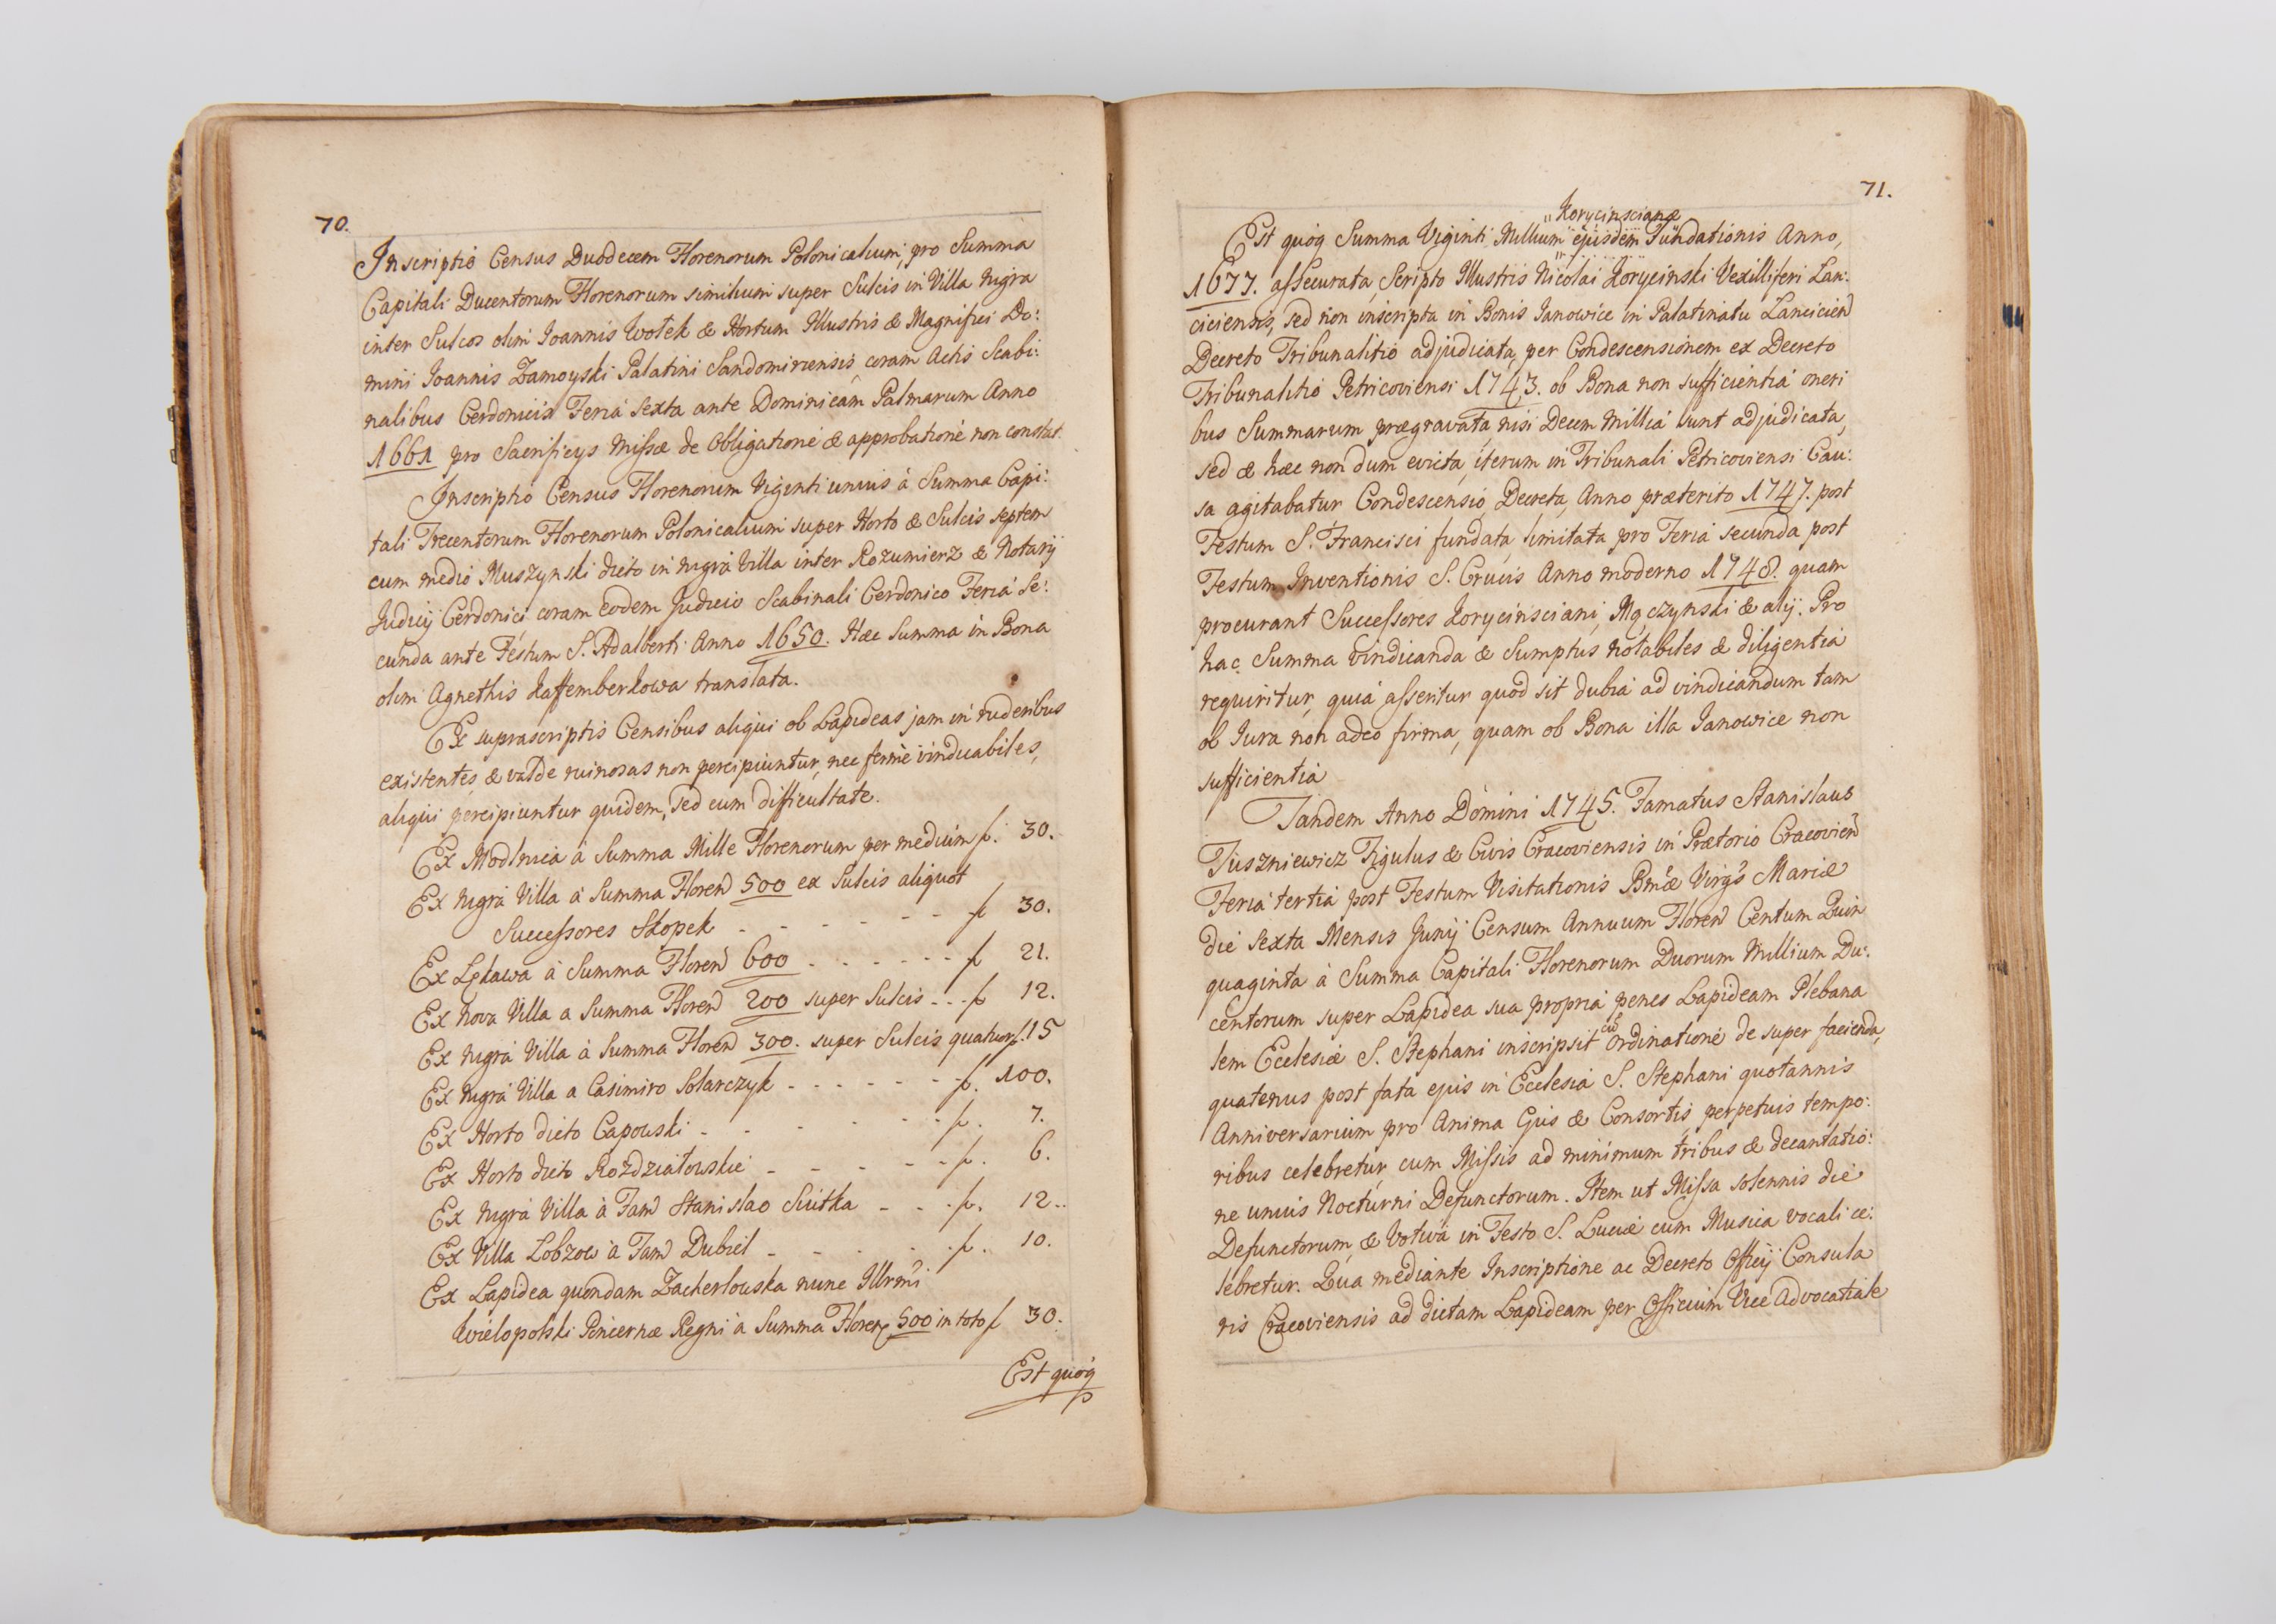 70.
Inscriptio Census Duodecem Florenorum Polonicalium, pro Summa
Capitali Ducentorum Florenorum similium super Sulcis in Villa Nigra
inter Sulcos olim Ioannis Wołek & Hortum Illustris & Magnifici Do:
mini Ioannis Zamoyski Palatini Sandomiriensis, coram Actis Scabi:
nalibus Cerdonicis Feria sexta ante Dominicam Palmarum Anno
1661 pro Sacrificys Missæ de Obligatione & approbatione non constat.
Inscriptio Census Florenorum Viginti unius à Summa Capi:
tali Trecentorum Florenorum Polonicalium super Horto & Sulcis septem
cum medio Muszynski dicto in nigra Villa inter Rozumierz & Notarij
Judicij Cerdonici coram eodem Judicio Scabinali Cerdonico Feria Se:
cunda ante Festum S. Adalberti Anno 1650. Hæc Summa in Bona
olim Agnethis Kaffemberkowa translata.
Ex suprascriptis Censibus aliqui ob Lapideas jam in ruderibus
existentes & valde ruinosas non percipiuntur, nec ferme vindicabiles,
aliqui percipiuntur quidem, sed cum difficultate.
Ex Modlnica à Summa Mille Florenorum per medium f. 30.
Ex nigra Villa à Summa Floren 500 ex Sulcis aliquot
Successores Skopek - - - - - - f 30.
Ex Łękawa à Summa Floren 600 - - - - - - f 21.
Ex Nova Villa a Summa Floren 200 super Sulcis - - - f 12.
Ex nigra Villa à Summa Floren 300. super Sulcis quatuor f. 15
Ex nigra Villa a Casimiro Solarczyk - - - - - - - f. 100.
Ex Horto dicto Capowski - - - - - - - f. 7.
Ex Horto dicto Rozdziałowskie - - - - - f. 6.
Ex nigra Villa à Fam Stanislao Siutka - - - f. 12..
Ex Villa Lobzow à Fam Dubiel - - - - - f. 10.
Ex Lapidea quondam Zacherlowska nunc Illrmi
Wielopolski Pincernæ Regni à Summa Floren 500 in toto f 30.
Est quóq
71.
Korycinscianæ
Est quóq Summa Viginti Millium ejusdem Fundationis Anno,
1677. assecurata, Scripto Illustris Nicolai Korycinski Vexilliferi Lan:
ciciensis, sed non inscripta in Bonis Ianowice in Palatinatu Lancicien
Decreto Tribunalitio adjudicata, per Condescensionem ex Decreto
Tribunalitio Petricoviensi 1743. ob Bona non sufficientia oneri
bus Summarum prægravata, nisi Decem millia sunt adjudicata,
sed & hæc non dum evicta, iterum in Tribunali Petricoviensi Cau:
sa agitabatur Condescensio, Decreta, Anno præterito 1747. post
Festum S. Francisci fundata, limitata pro Feria secunda post
Festum Inventionis S. Crucis Anno moderno 1748. quam
procurant Successores Korycinsciani, Mączynski & alij. Pro
hac Summa vindicanda & Sumptus notabiles & diligentia
requiritur, quia asseritur quod sit dubia ad vindicandum tam
ob Iura non adeo firma, quam ob Bona illa Ianowice non
sufficientia
Tandem Anno Domini 1745. Famatus Stanislaus
Tuszniewicz Figulus & Civis Cracoviensis in Prætorio Cracovien
Feria tertia post Festum Visitationis Bmæ Virgs Mariæ
die sexta Mensis Junij Censum Annuum Floren Centum Quin
quaginta à Summa Capitali Florenorum Duorum Millium Du:
centorum super Lapidea sua propria penes Lapideam Plebana
lem Ecclesiæ S. Stephani inscripsit cu ordinatione de super facienda,
quatenus post fata ejus in Ecclesia S. Stephani quotannis
Anniversarium pro Anima Ejus & Consortis, perpetuis tempo:
ribus celebretur, cum Missis ad minimum tribus & decantatio:
ne unius Nocturni Defunctorum. Item ut Missa solennis die
Defunctorum, & Votiva in Festo S. Luciæ cum Musica vocali ce:
lebretur. Qua mediante Inscriptione ac Decreto Officij Consula
ris Cracoviensis ad dictam Lapideam per Officium Vice Advocatiale